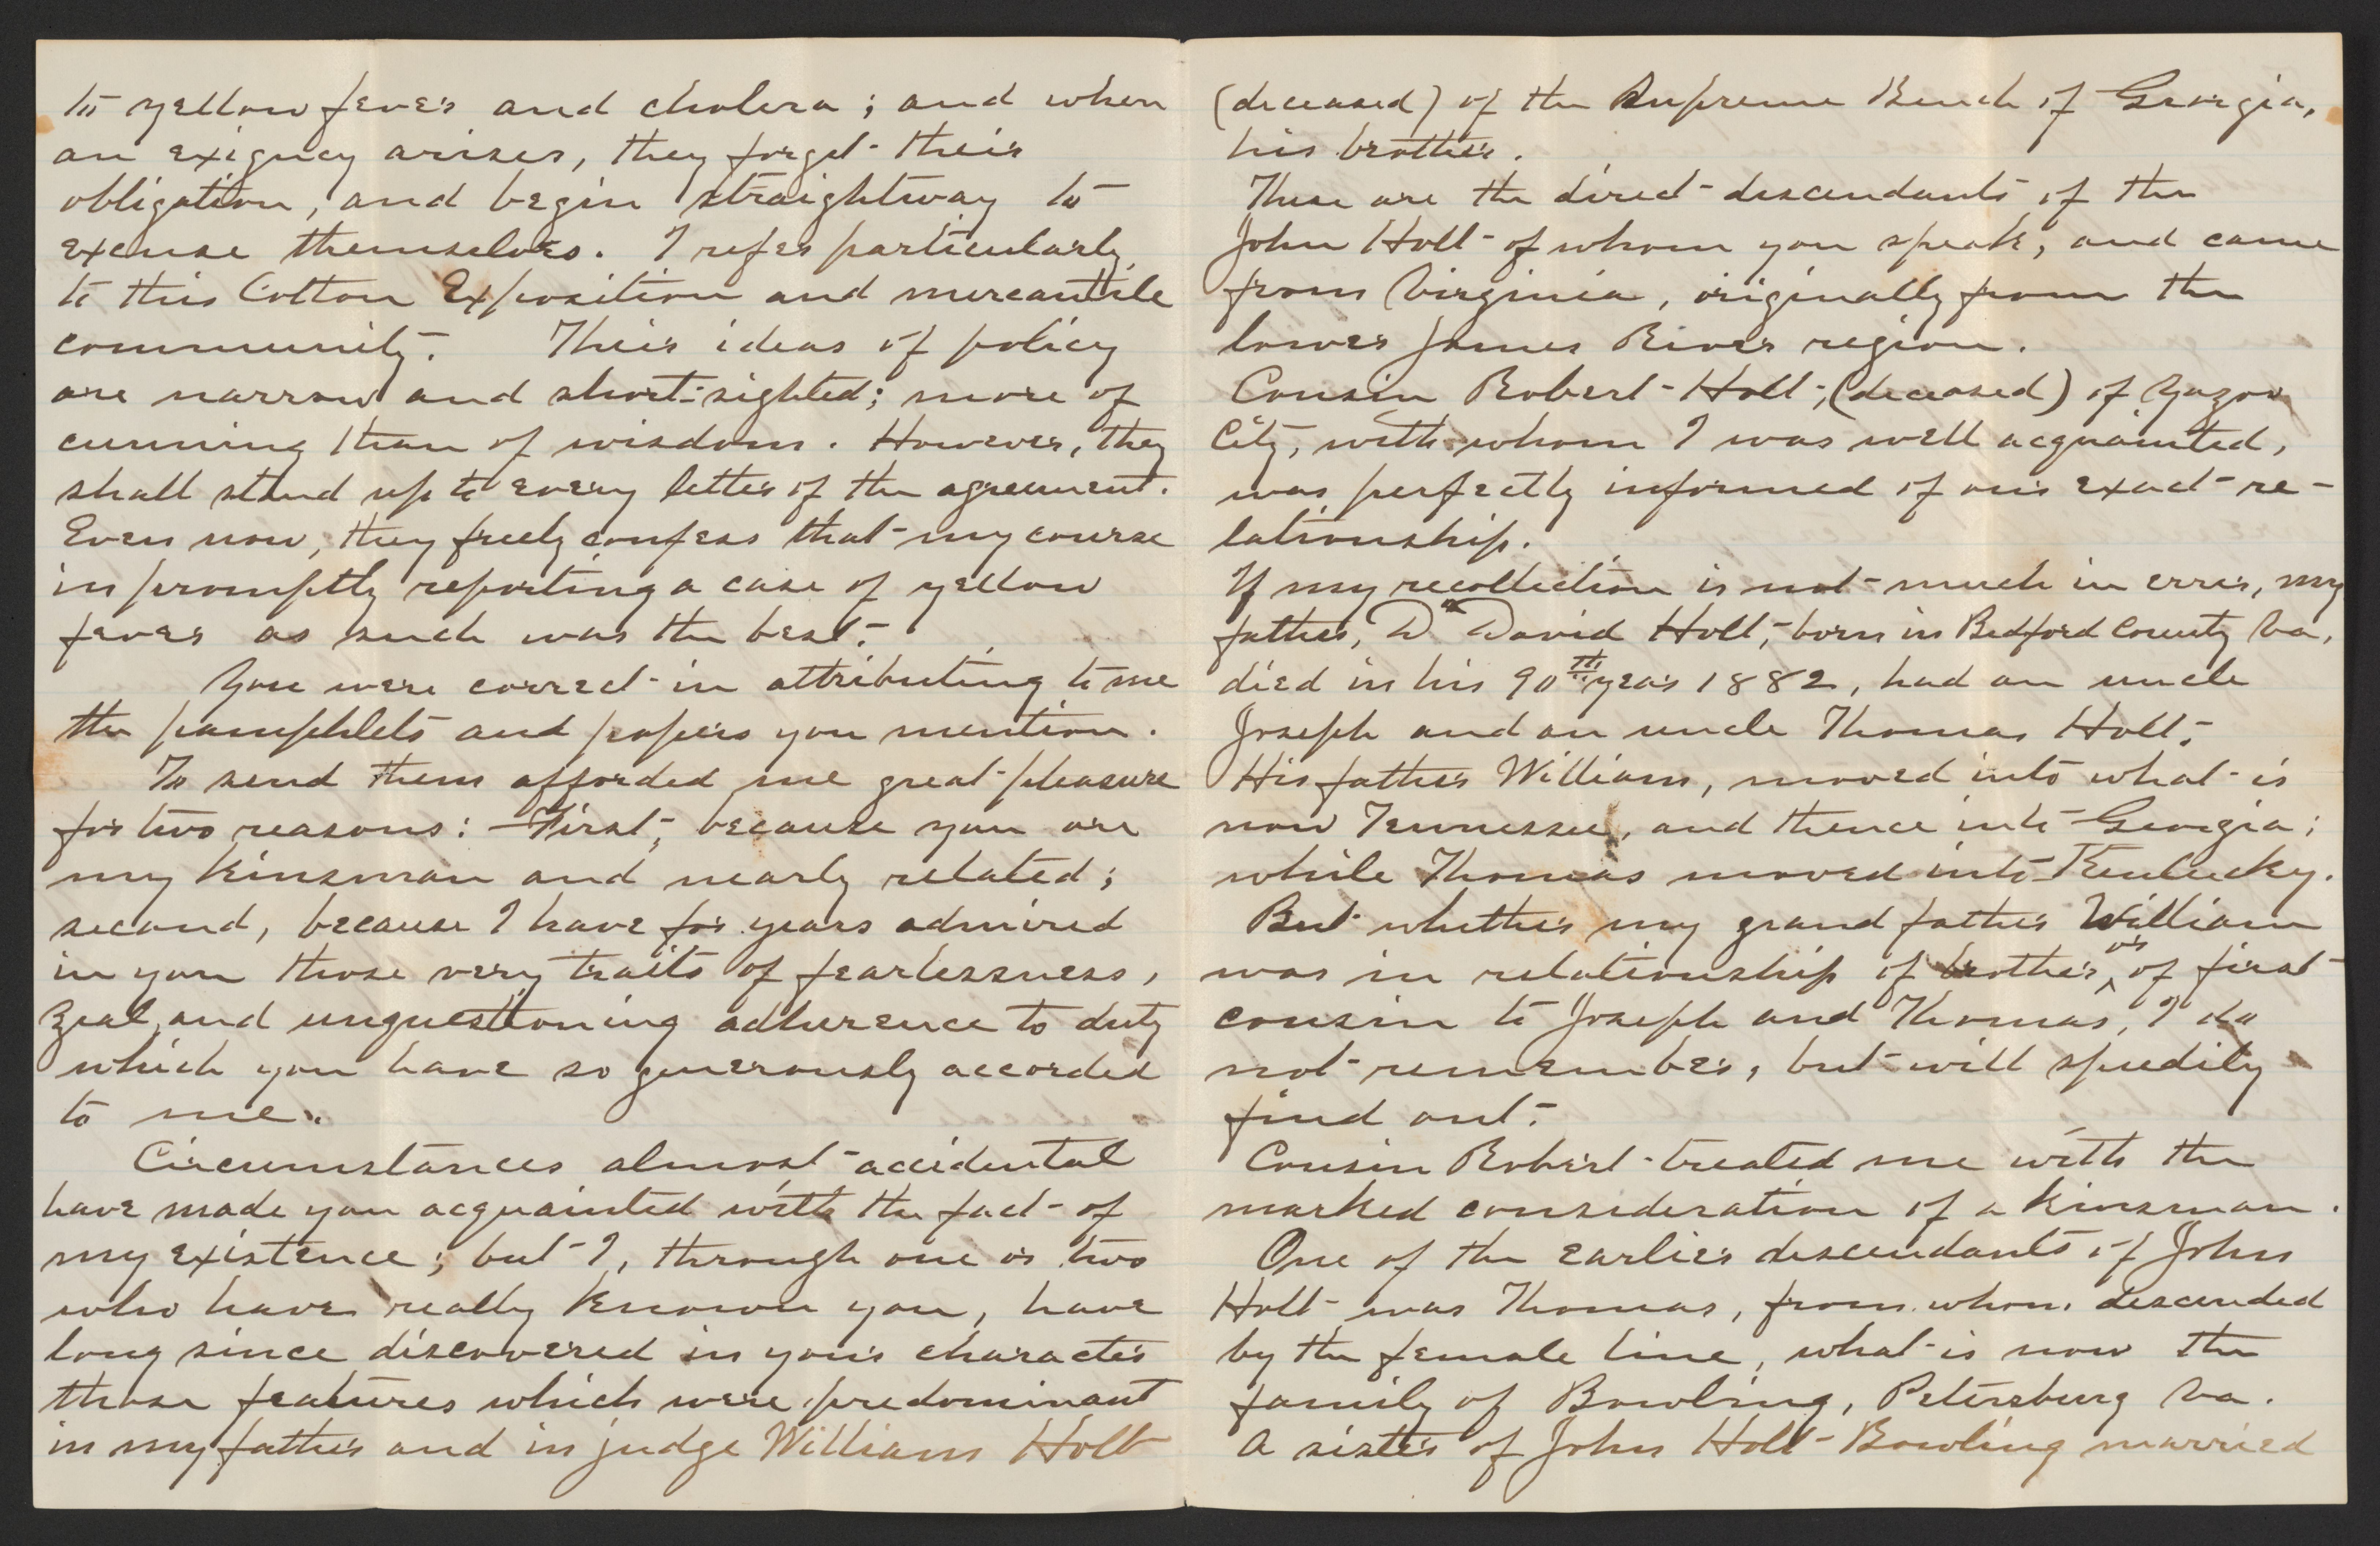 to yellow fever and cholera; and when
an exigncy arises, they forget their
obligation, and begin straightway to
excuse themselves. I refer particularly
to this Cotton Exposition and mercantile
community. Their ideas of policy
are narrow and short-sighted; more of
cunning than of wisdom. However, they
shall stand up to every letter of the agreement.
Even now, they freely confess that my course
in promptly reporting a case of yellow
fever as such was the best.
You were correct in attributing to me
the pamphlets and papers you mention.
To send them afforded me great pleasure
for two reasons: First, because you are
my kinsman and nearly related;
second, because I have for years admired
in you those very traits of fearlessness,
zeal, and unquestioning adherence to duty
which you have so generously accorded
to me.
Circumstances almost accidental
have made you acquainted with the fact of
my existence; but I, through one or two
who have really known you, have
long since discovered in your character
those features which were predominant
in my father and in judge William Holt
(deceased) of the Supreme Bench of Georgia,
his brother.
These are the direct descendants of the
John Holt of whom you speak, and came
from Virginia, originally from the
lower James River region.
Cousin Robert Holt, (deceased) of Yazoo
City, with whom I was well acquainted,
was perfectly informed of our exact re-
lationship.
If my recollection is not much in error, my
father, Dr David Holt, born in Bedford County Va,
died in his 90th year 1882, had an uncle
Joseph and an uncle Thomas Holt.
His father William, moved into what is
now Tennessee, and thence into Georgia;
while Thomas moved into Kentucky.
But whether my grand father William
was in relationship of brother, or of first
cousin to Joseph and Thomas, I do
not remember, but will speedily
find out.
Cousin Robert treated me with the
marked consideration of a kinsman.
One of the earlier descendants of John
Holt was Thomas, from whom descended
by the female line, what is now the
family of Bowling, Petersburg Va.
A sister of John Holt Bowling married